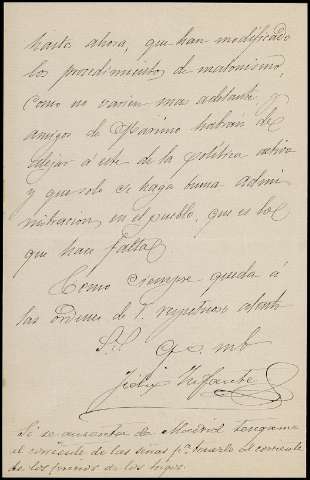 hasta ahora, que han modificado
los procedimientos de matonismo,
como no varien mas adelante, y
amigos de habrán de
dejar á este de la politica activa
y que solo se haga buena admi
nistracion en el pueblo, que es lo
que hace falta
Como siempre queda á
las órdenes de V. respetuoso atento
S.S. q. s. m b
Felix Infante
Si se ausenta de Madrid tengame
al corriente de las señas pª tenerle al corriente
de los de los hijos.